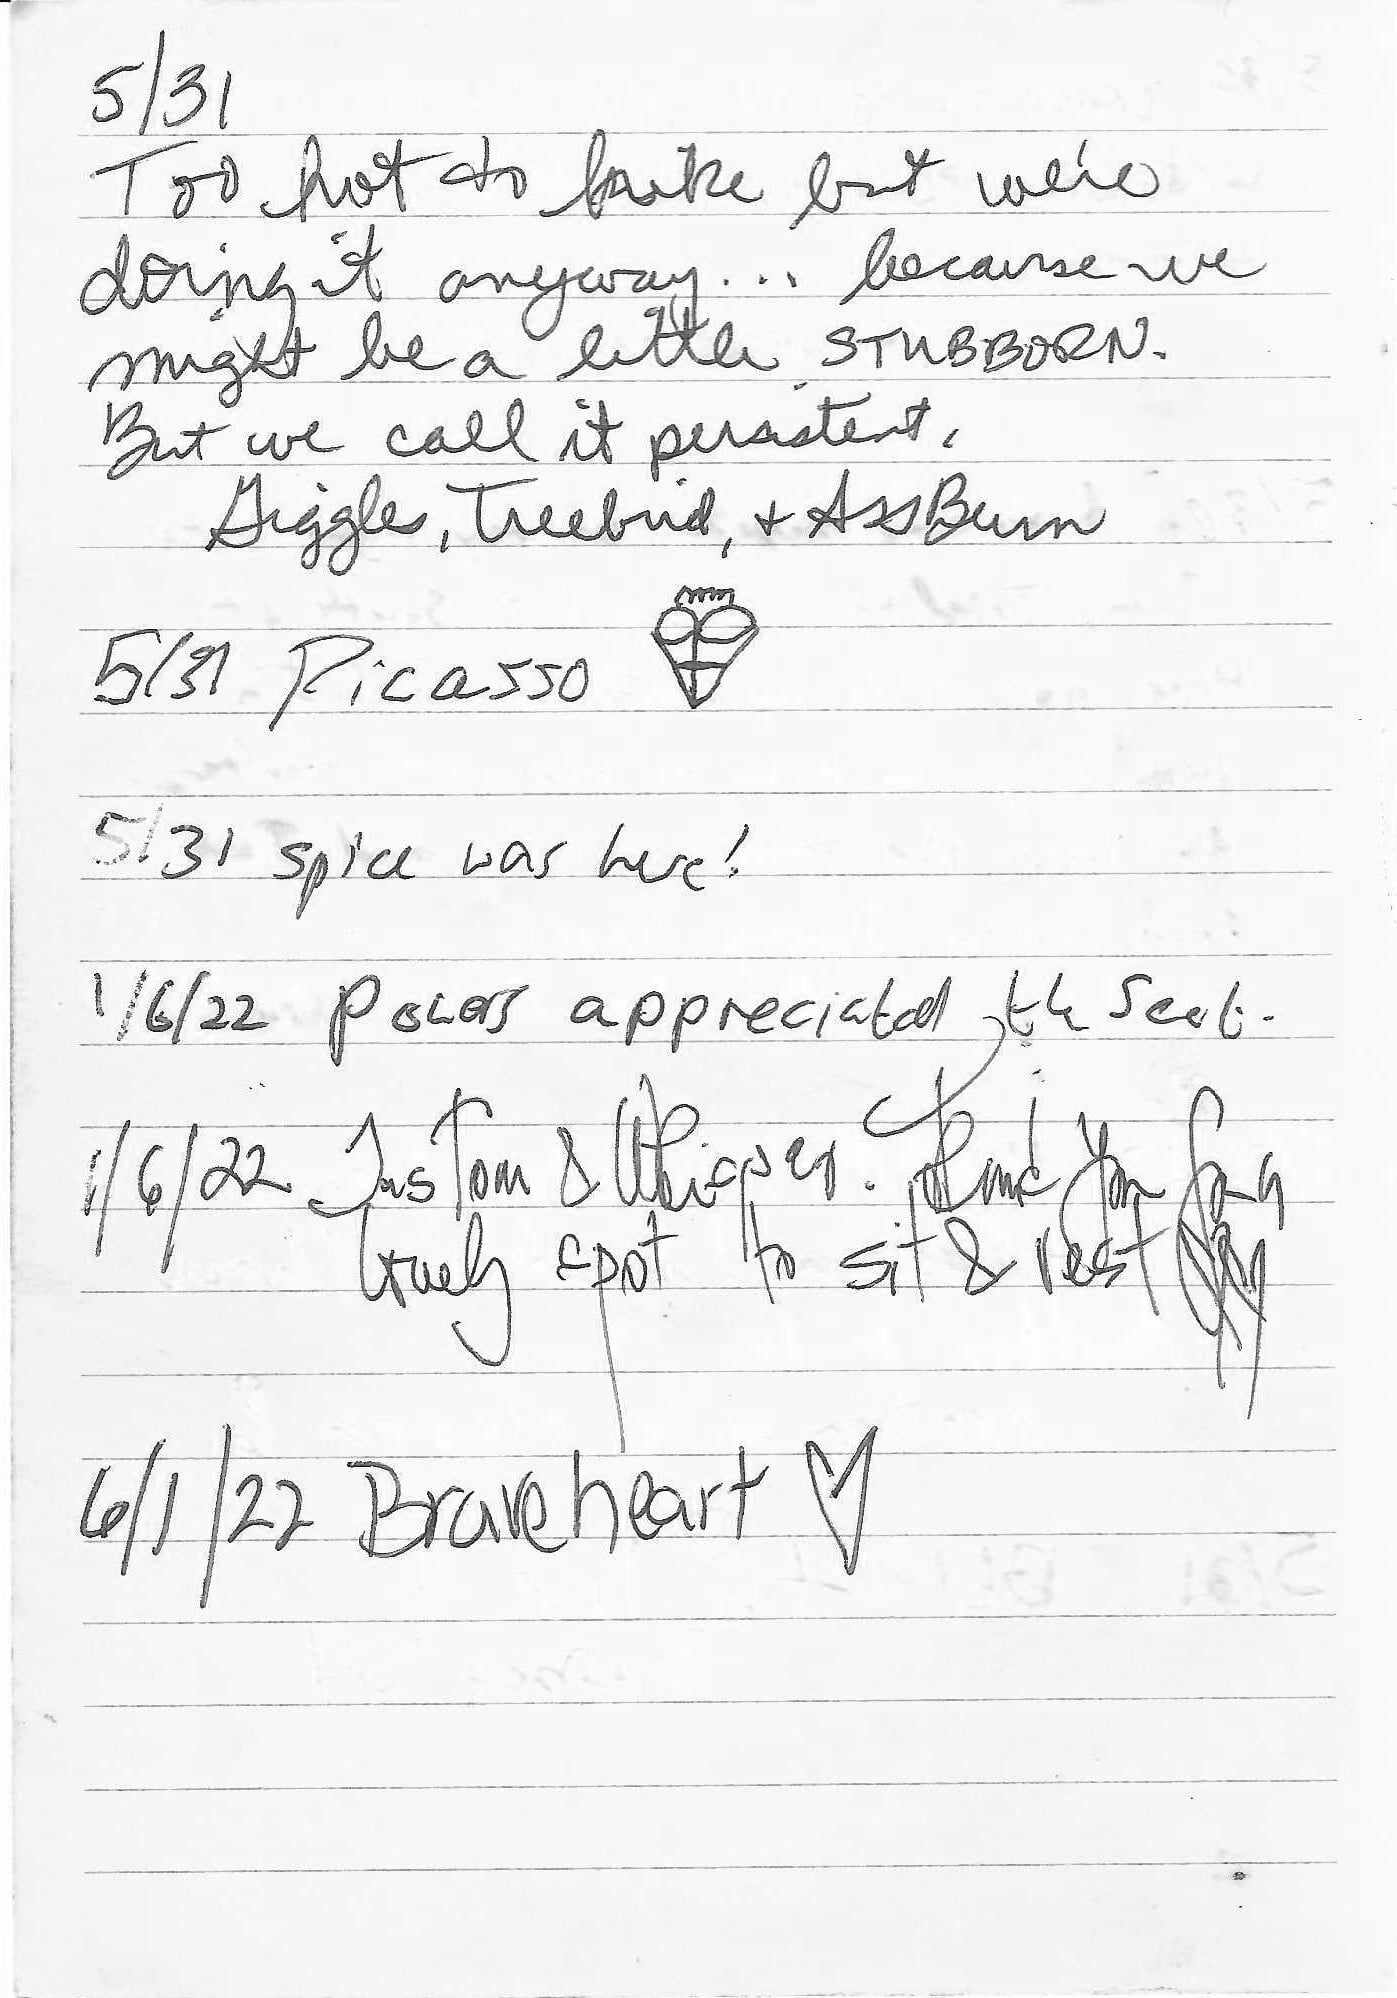 5/31
Too hot to hike but we're
doing it anyway... because we
might be a little STUBBORN.
But we call it persistent.
Giggles, Treebird, + AssBurn
5/31 Picasso
5/31 spice was here!
1/6/22 appreciated the Seat.
1/6/22 JusTom & Whisper. Thank you for a
lovely spot to sit & rest
6/1/22 Braveheart